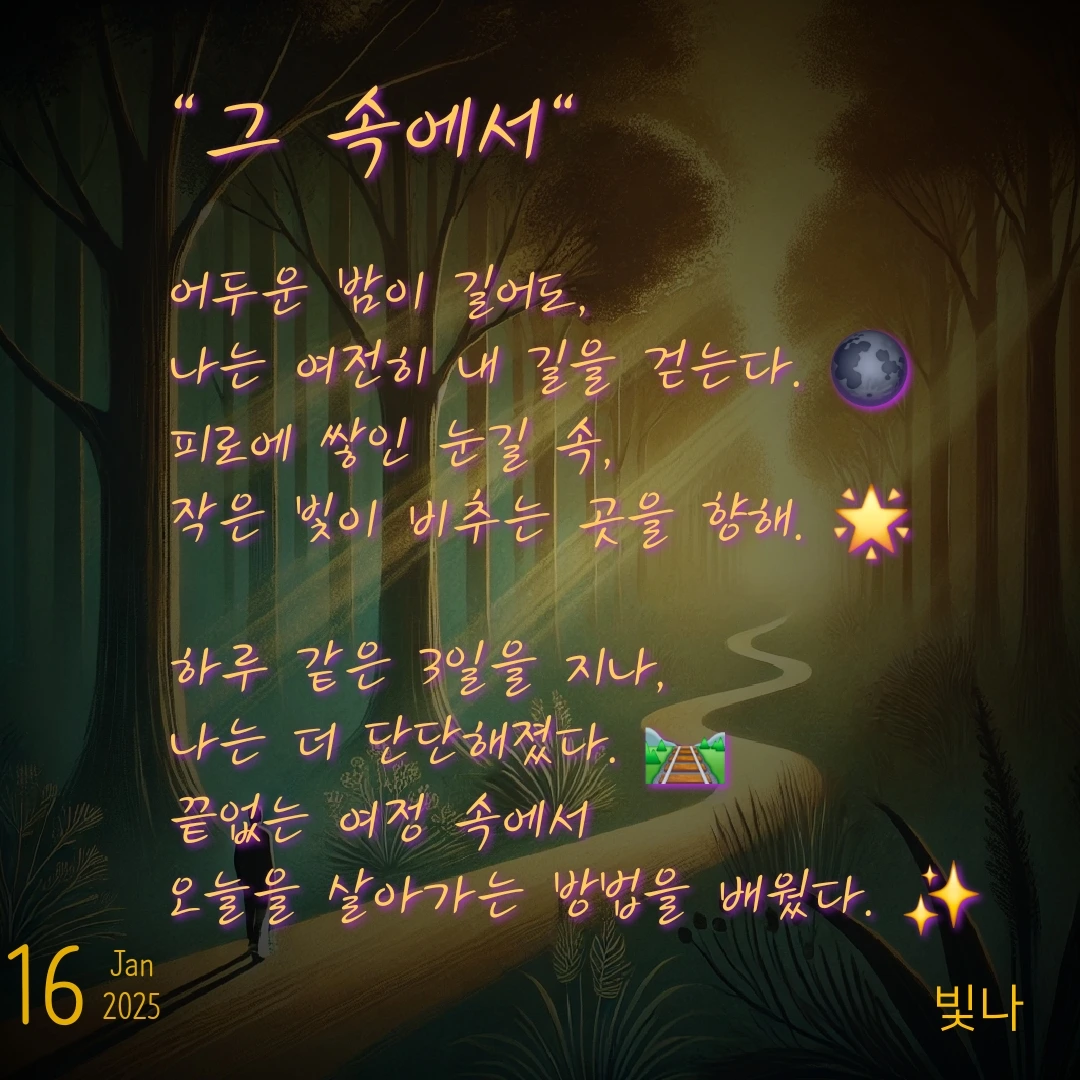 “그 속에서“
어두운 밤이 길어도,
나는 여전히 내 길을 걷는다. 🌑
피로에 쌓인 눈길 속,
작은 빛이 비추는 곳을 향해. 🌟
하루 같은 3일을 지나,
나는 더 단단해졌다. 🛤️
끝없는 여정 속에서
오늘을 살아가는 방법을 배웠다. ✨
16 Jan 2025
빛나